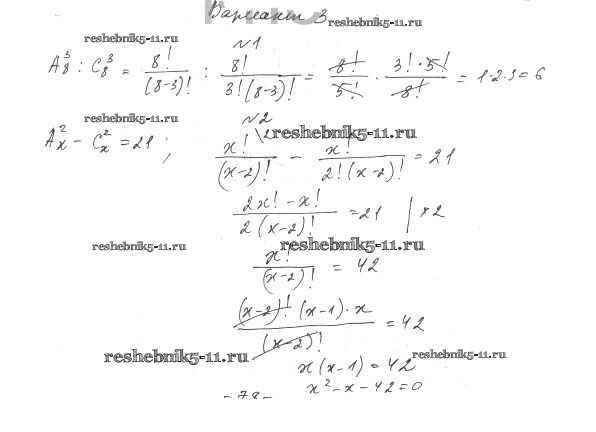 Вариант 3
reshebnik5-11.ru
reshebnik5-11.ru
№1
A₈³ : C₈³ = 8!/(8-3)! : 8!/(3!(8-3)!) = 8!/5! · (3!·5!)/8! = 1·2·3 = 6
reshebnik5-11.ru
№2
reshebnik5-11.ru
Aₓ² - Cₓ² = 21 ; x!/(x-2)! - x!/(2!(x-2)!) = 21
(2x! - x!)/(2(x-2)!) = 21 | ×2
reshebnik5-11.ru
reshebnik5-11.ru
x!/(x-2)! = 42
((x-2)!(x-1)·x)/(x-2)! = 42
reshebnik5-11.ru
reshebnik5-11.ru
x(x-1) = 42
x² - x - 42 = 0
- 78 -